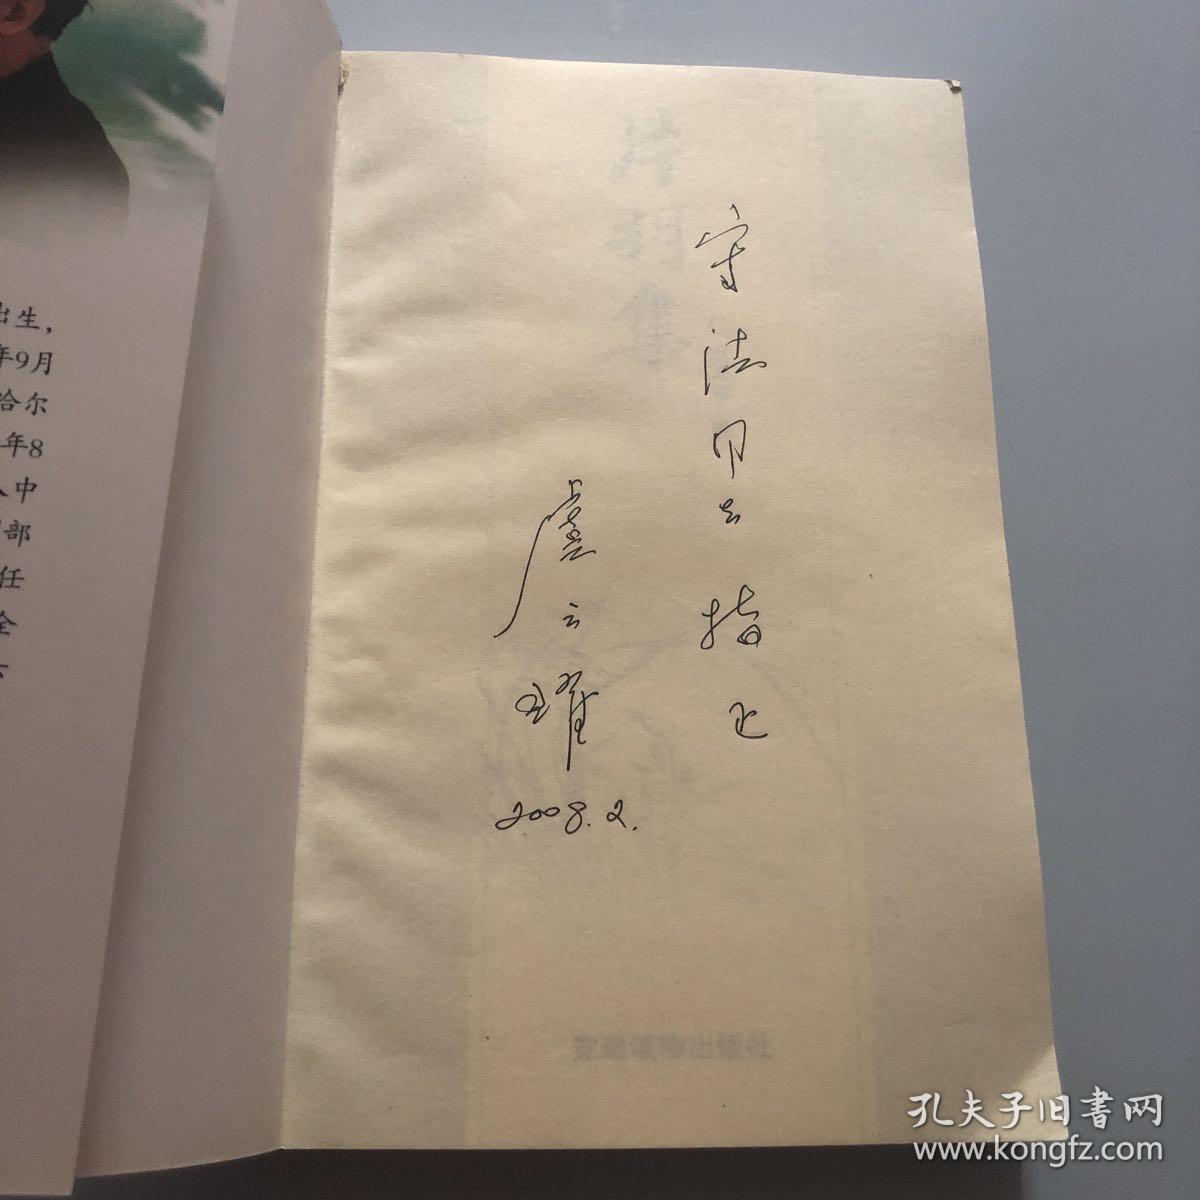 出生，
年9月
哈尔
年8
中
部
任
全
守法同志 指正
虞云耀
2008.2.
党建读物出版社
孔夫子旧書网
www.kongfz.com